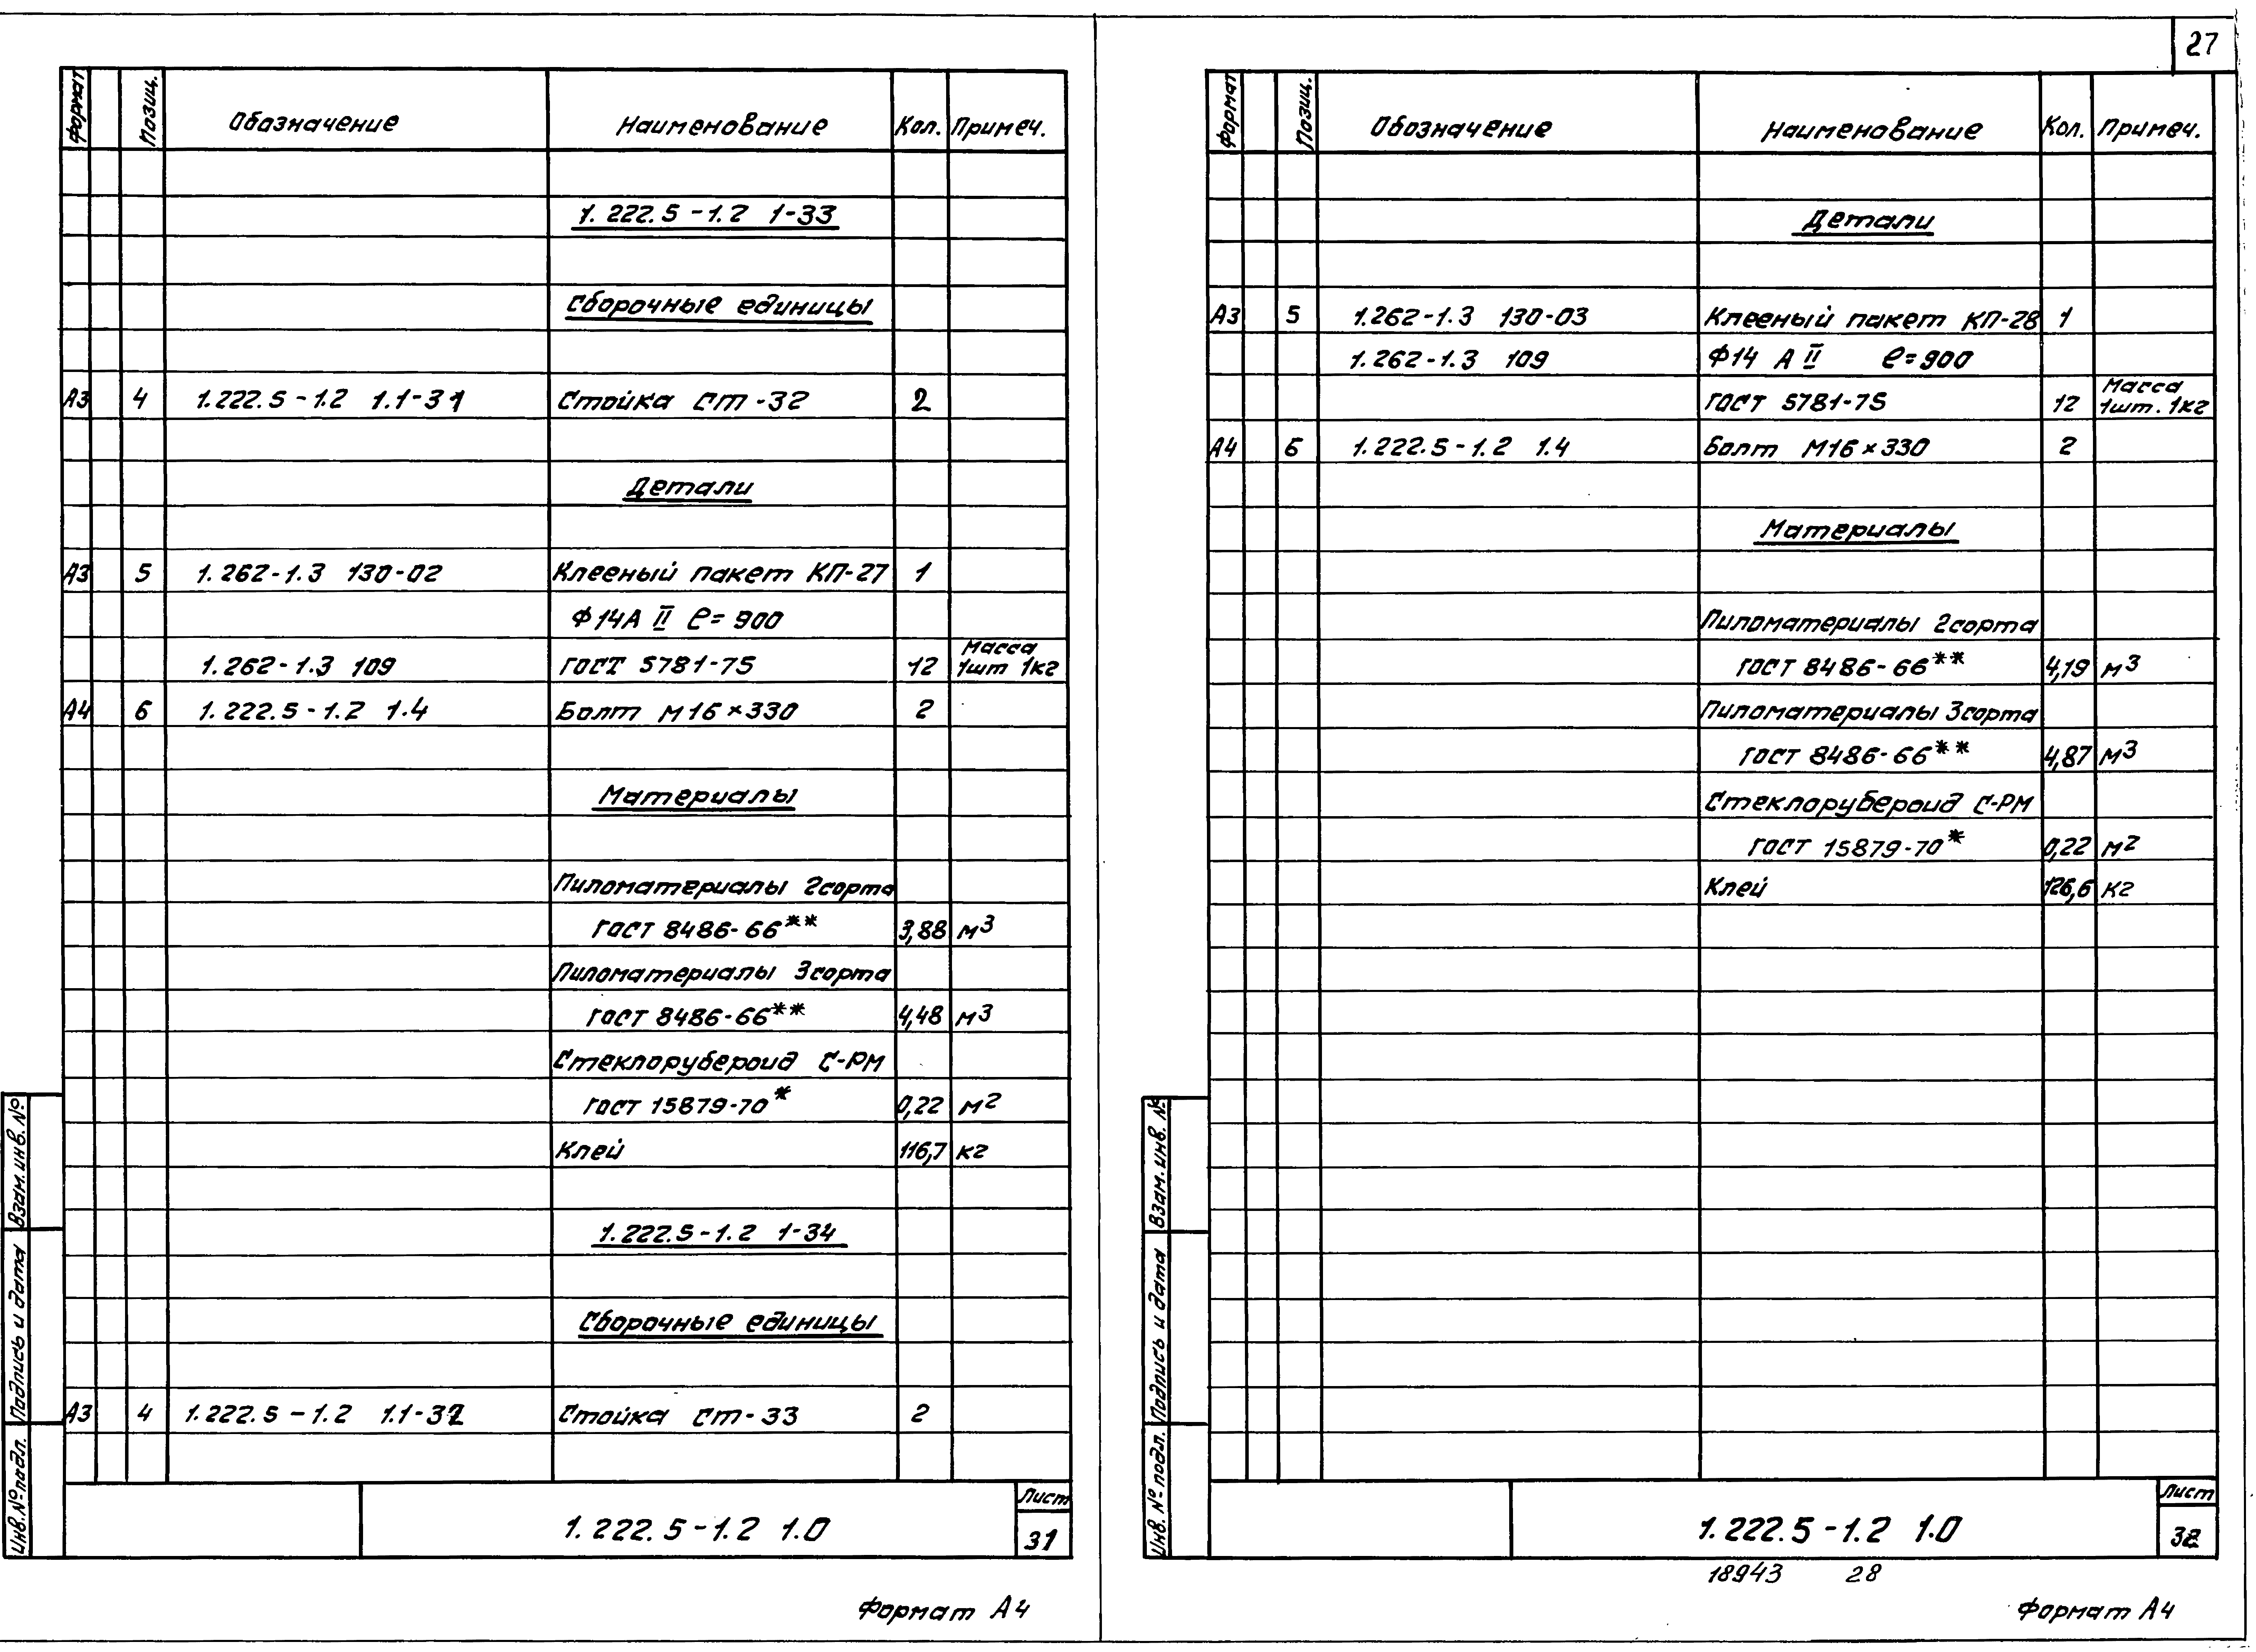 27
Формат Позиц. Обозначение Наименование Кол. Примеч.
1.222.5-1.2 1-33
Сборочные единицы
А3 4 1.222.5-1.2 1.1-31 Стойка СТ-32 2
Детали
А3 5 1.262-1.3 130-02 Клееный пакет КП-27 1
Ф14А II ℓ=900
Масса
1.262-1.3 109 ГОСТ 5781-75 12 1шт 1кг
А4 6 1.222.5-1.2 1.4 Болт М16×330 2
Материалы
Пиломатериалы 2сорта
ГОСТ 8486-66** 3,88 м3
Пиломатериалы 3сорта
ГОСТ 8486-66** 4,48 м3
Стеклорубероид С-РМ
ГОСТ 15879-70* 0,22 м2
Клей 116,7 кг
1.222.5-1.2 1-34
Сборочные единицы
А3 4 1.222.5-1.2 1.1-32 Стойка СТ-33 2
Взам.инв.№
Подпись и дата
Инв.№подл.
1.222.5-1.2 1.0
Лист
31
Формат А4
Формат Позиц. Обозначение Наименование Кол. Примеч.
Детали
А3 5 1.262-1.3 130-03 Клееный пакет КП-28 1
1.262-1.3 109 Ф14 А II ℓ=900
Масса
ГОСТ 5781-75 12 1шт. 1кг
А4 6 1.222.5-1.2 1.4 Болт М16×330 2
Материалы
Пиломатериалы 2сорта
ГОСТ 8486-66** 4,19 м3
Пиломатериалы 3сорта
ГОСТ 8486-66** 4,87 м3
Стеклорубероид С-РМ
ГОСТ 15879-70* 0,22 м2
Клей 126,6 кг
Взам.инв.№
Подпись и дата
Инв.№подл.
1.222.5-1.2 1.0
Лист
32
18943 28
Формат А4